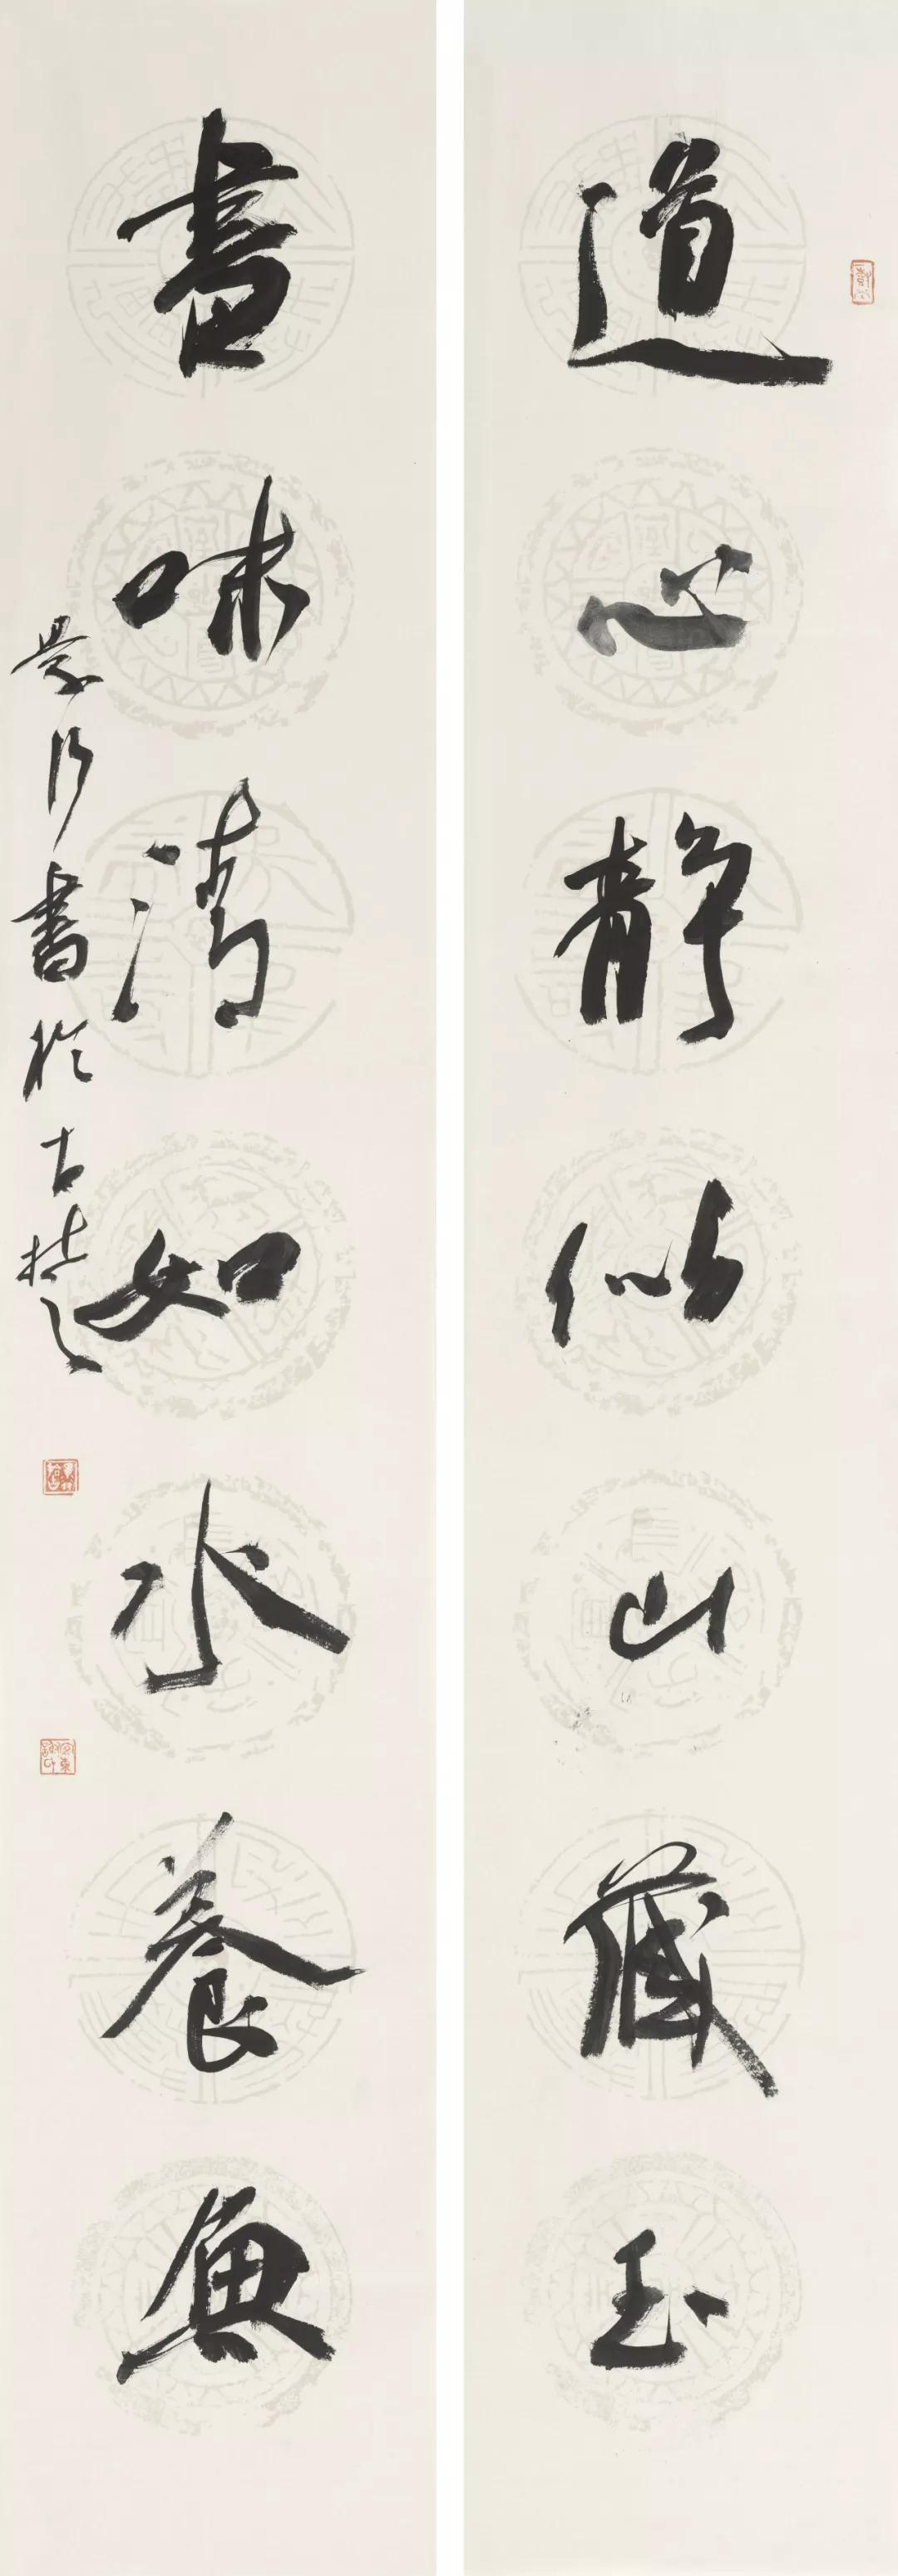 道心静似山藏玉
書味清如水養魚
景行書於古楚